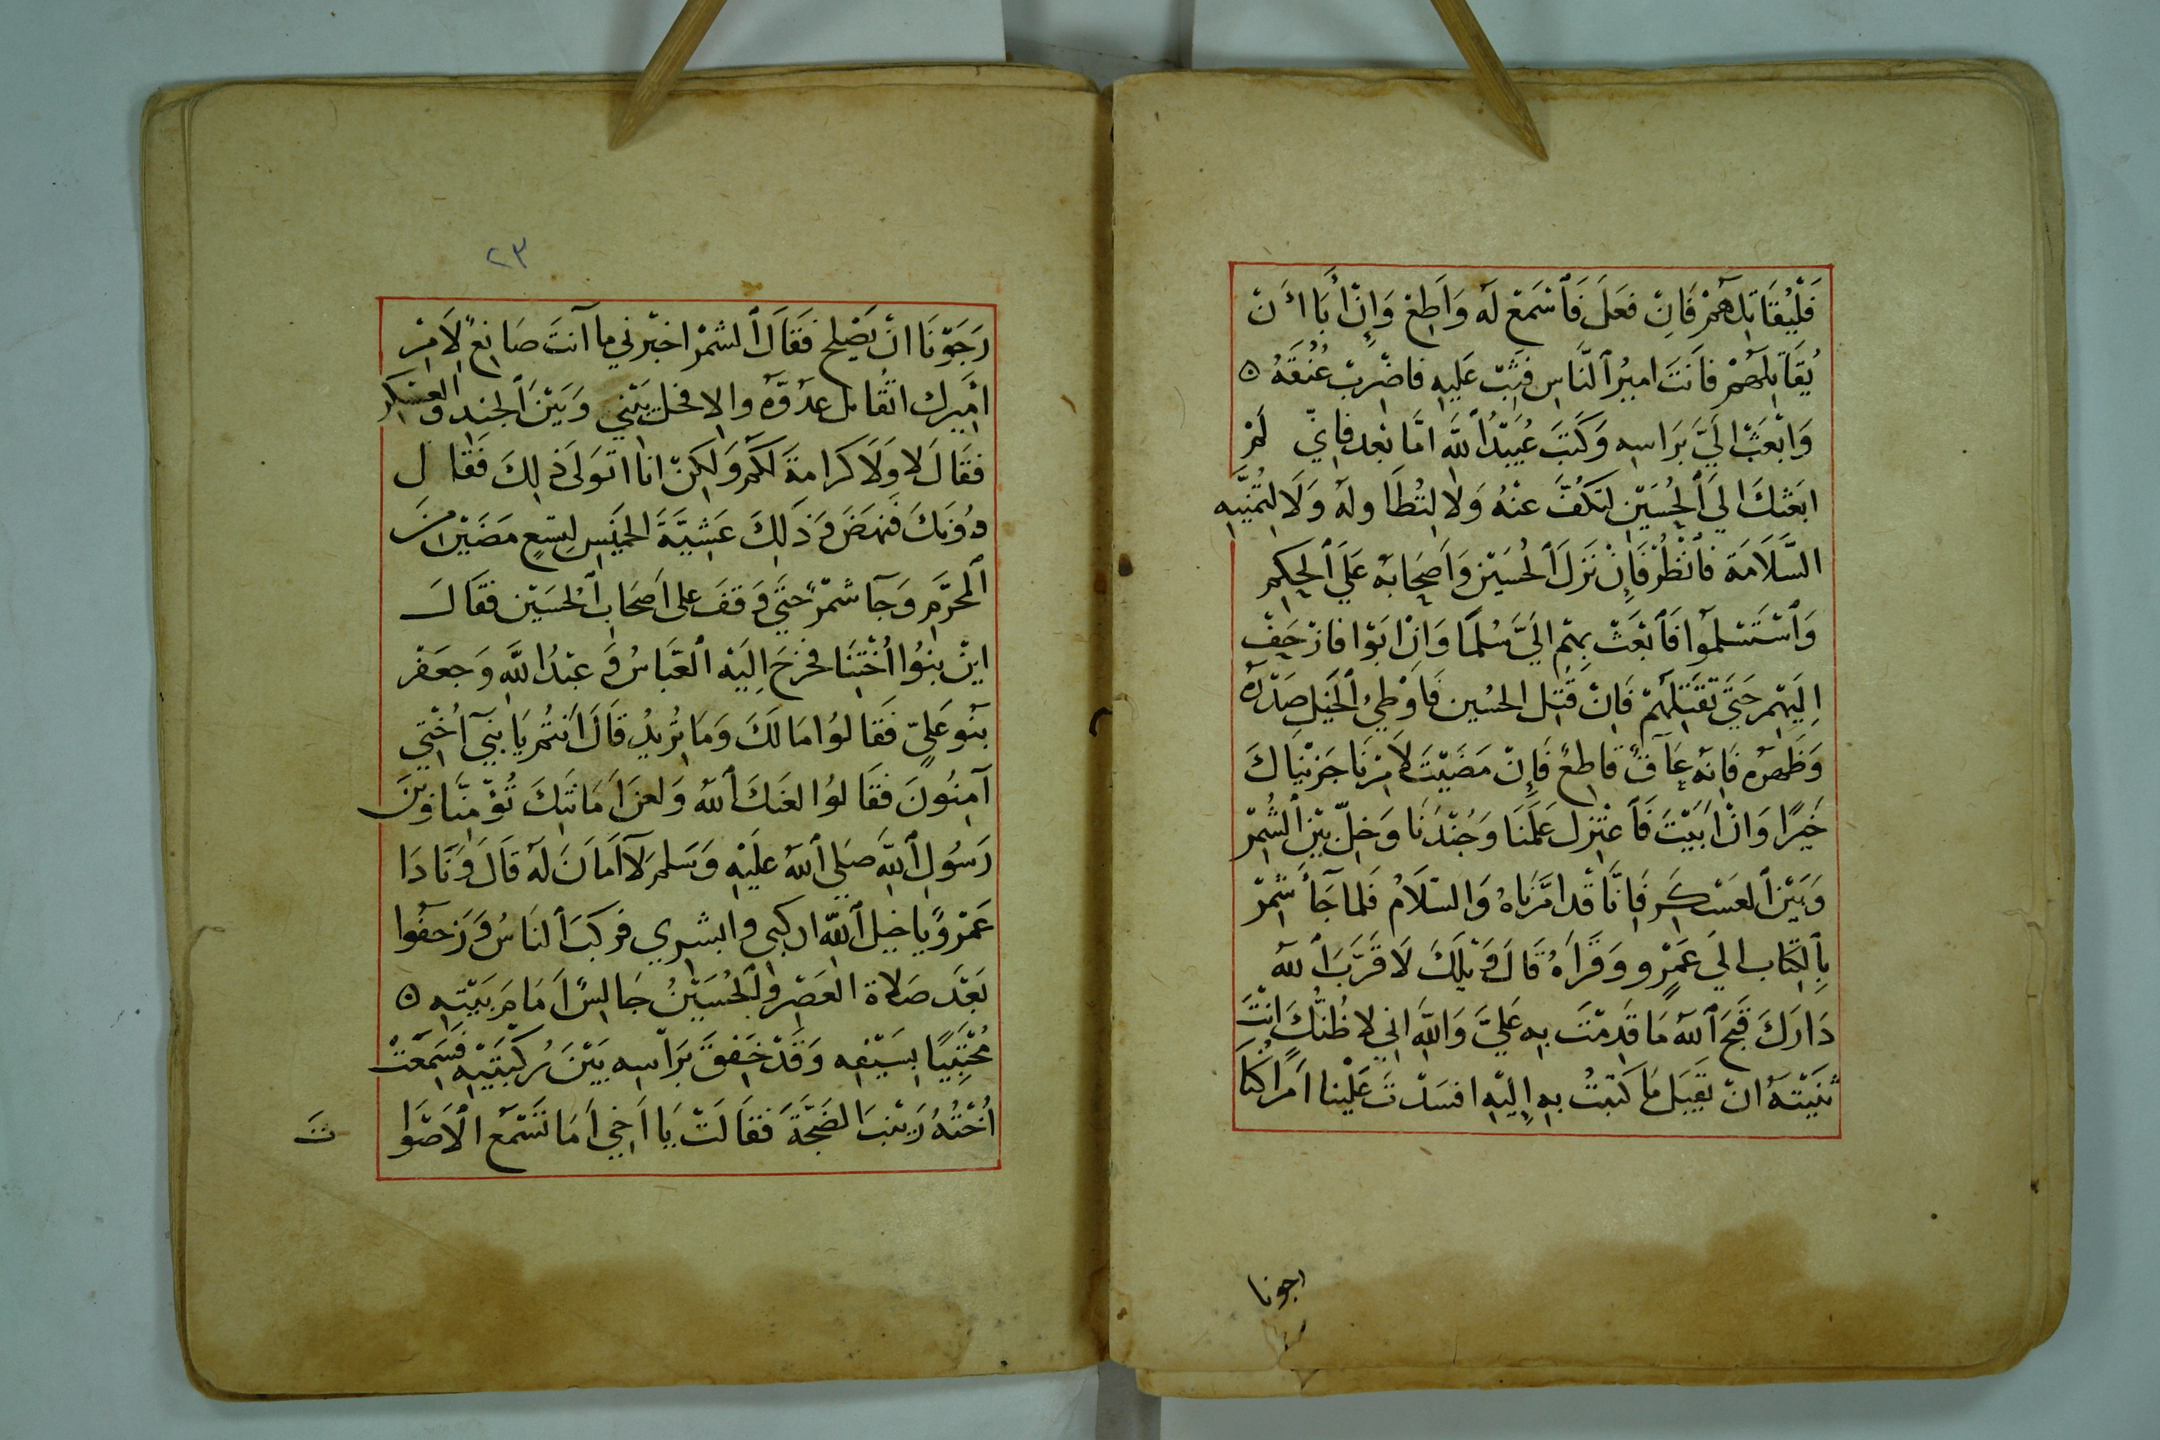 فَلْيُقَاتِلهُمْ فَاِنْ فعَلَ فَٱسْمَعْ لَه وَاَطِعْ وَاِنْ أَبَا اَنْ
يُقَاتِلهُمْ فَانَتَ اميرُ ٱلنَّاسِ فَثِبْ عَلَيهِ فاضْرِبْ عُنُقَهُ ه
وَابْعَثْ اِلَيَّ بَرَاسِهِ وَكَتَبَ عُبَيْدُ ٱللَّه امَّا بَعْد فاِنِّي لَمْ
ابَعَثكَ الَي ٱلحُسَيْن لتكُفَّ عنْهُ وَلَا لِتُطَاوِلَه وَلَا لِتُمَنِّيَه
السَّلَامَة فَٱنْظُرْ فَاِنْ نَزلَ ٱلحُسَيْن وَاَصحَابَه عَلَي ٱلحِكم
وَٱسْتَسْلمُوا فَٱبَعَثْ بِهِم اِلَيَّ سْلمًا وَاِنْ ابَوْا فازْحَفْ
اِلَيْهِمْ حَتَّي تَقْتِلَهُمْ فَاِنْ قُتِل الحسُين فَاوْطِئ ٱلخَيْل صَدْرَه
وَظهَرْه فَانَّهُ عَآقٌ قاطِعٌ فَاِنْ مَضَيْتَ لِاَمْرِنَا جَزيْنَاكَ
خَيرًا وَانْ اَبَيْتَ فَاعْتزِل عَملَنَا وَجُنْدَنَا وَخلِّ بيْنَ ٱلشُمْرْ
وَبَيْنَ ٱلعَسْكَر فَاِنَّا قْد امَّرْنَاهُ وَالسَّلَامُ فَلما جَآ شمْرْ
بِٱلكِتَاب اِلَي عَمْرٍو وَقَرَاهُ قَالَ وَيْلَكَ لَا قَرَّبَ ٱللَّه
دَارَكَ قَبَحَ ٱللَّه مَا قَدِمْتَ بِهِ عَلَيَّ وَاللَّهِ اِني لَاظُنُّكَ انْتَ
ثنَيْتَهَُ انْ يَقبَل مَا كَتبْتُ بهِ اِلَيْهِ افسَدْتَ عَلَيْنا اَمْرًا كُنَّا
رجونا
٢٣
رَجَوْنَا انْ يَصْلِح فَقَالَ ٱلشمْرْ اخبِرْني ما آنتَ صَانِعٌ لِاَمْرِ
امَيِرك اتُقَاتل عدُوَّه والا فخلِّ بَيْني وَبَيْنَ ٱلجندِ وَالعسْكَر
فقَالَ لا وَلَا كَرامَةَ لكَمْ وَلكِنْ انا اتوَلى ذٰلِكَ فَقَالَ
دُونَكَ فَنهَضَ وَذَلِكَ عَشِيَّةَ الخَمِيس لِتِسْعٍ مَضَيْن مِنَ
ٱلمحَرَّم وَجآ شمْرٌ حتَّي وَقفَ على اَصَحَاب ٱلحُسَيْن فقَالَ
اينْ بنوُا اُخْتِنَا فخرَجَ اِلَيْهِ ٱلعَبَّاسُ وَعبْدُ اللَّهِ وَجعَفرْ
بنُو عَليٍّ فَقالوُا مَا لَكَ وَمَا تُريدُ قَالَ اَنتُمْ يَا بَنِي اُخْتِي
آمِنوُنَ فَقَالوُا لعَنَكَ ٱللَّه وَلعنَ اَمَانَتَكَ تُؤمِّنَّا وَبنَ
رَسوُلِ ٱللَّهِ صَلي ٱللَّه علَيْهِ وَسَلمْ لَآ اَمَانَ لَه قَالَ وَنَادَا
عَمْرٌو يَا خيْل ٱللَّه اركبى وابشرى فركبَ ٱلنَاسُ وَزحَفُوا
بَعْد صَلاة العَصْرِ وَالحُسَيْنُ جَالِسٌ اَمَامَ بَيْتِهِ ه
مُحْتَبِيًا بِسَيْفِهِ وَقَدْ خَفَقَ بَرَاسِهِ بَيْنَ رُكْبَتيْهِ فَسَمِعَتْ
اُخْتُهُ زَيْنَبَ الضَجَّةَ فَقَالَتْ يَا اَخِي اَمَا تَسْمَع الْاَصْوَا
ت